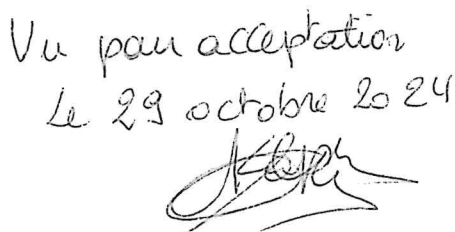 Vu pour acceptation
Le 29 octobre 2024